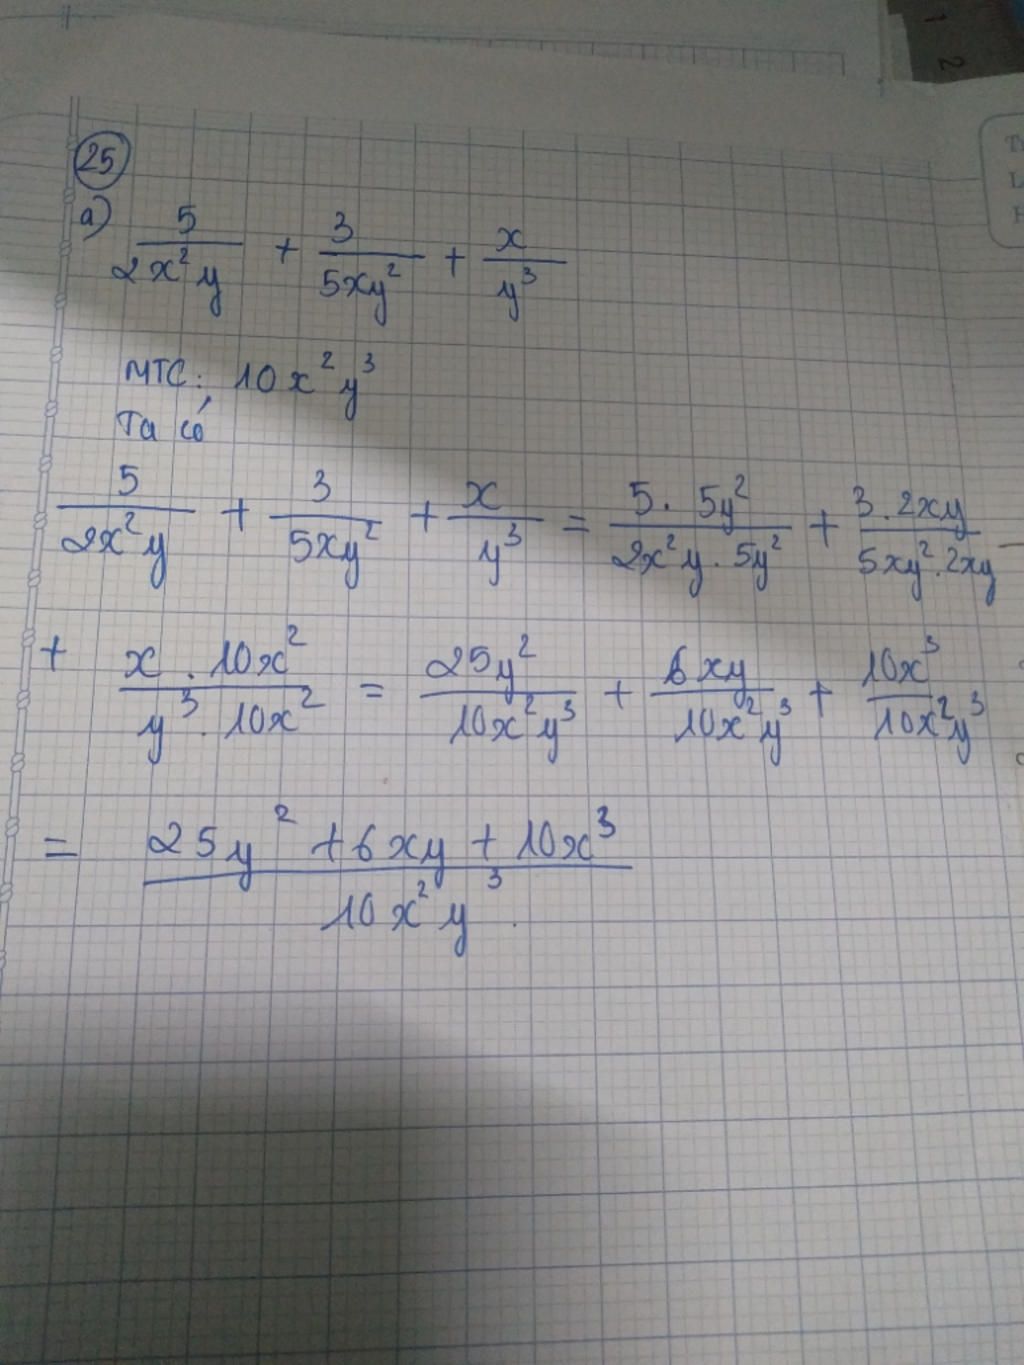 25
a) 5/(2x²y) + 3/(5xy²) + x/y³
MTC: 10x²y³
Ta có
5/(2x²y) + 3/(5xy²) + x/y³ = (5. 5y²)/(2x²y. 5y²) + (3.2xy)/(5xy².2xy)
+ (x.10x²)/(y³.10x²) = 25y²/(10x²y³) + 6xy/(10x²y³) + 10x³/(10x²y³)
= (25y² + 6xy + 10x³)/(10x²y³).
1 2